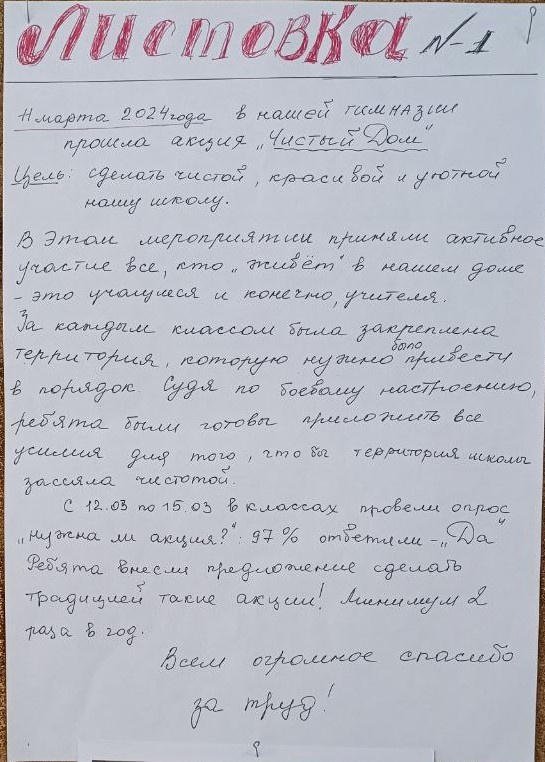 Листовка N-1
11 марта 2024 года в нашей гимназии
прошла акция „Чистый Дом“
Цель: сделать чистой, красивой и уютной
нашу школу.
В этом мероприятии приняли активное
участие все, кто „живёт“ в нашем доме
- это учащиеся и конечно, учителя.
За каждым классом была закреплена
территория, которую нужно было привести
в порядок Судя по боевому настроению,
ребята были готовы приложить все
усилия для того, что бы территория школы
засияла чистотой.
С 12.03 по 15.03 в классах провели опрос
„нужна ли акция?“: 97% ответили - „Да“
Ребята внесли предложение сделать
традицией такие акции! Минимум 2
раза в год.
Всем огромное спасибо
за труд!